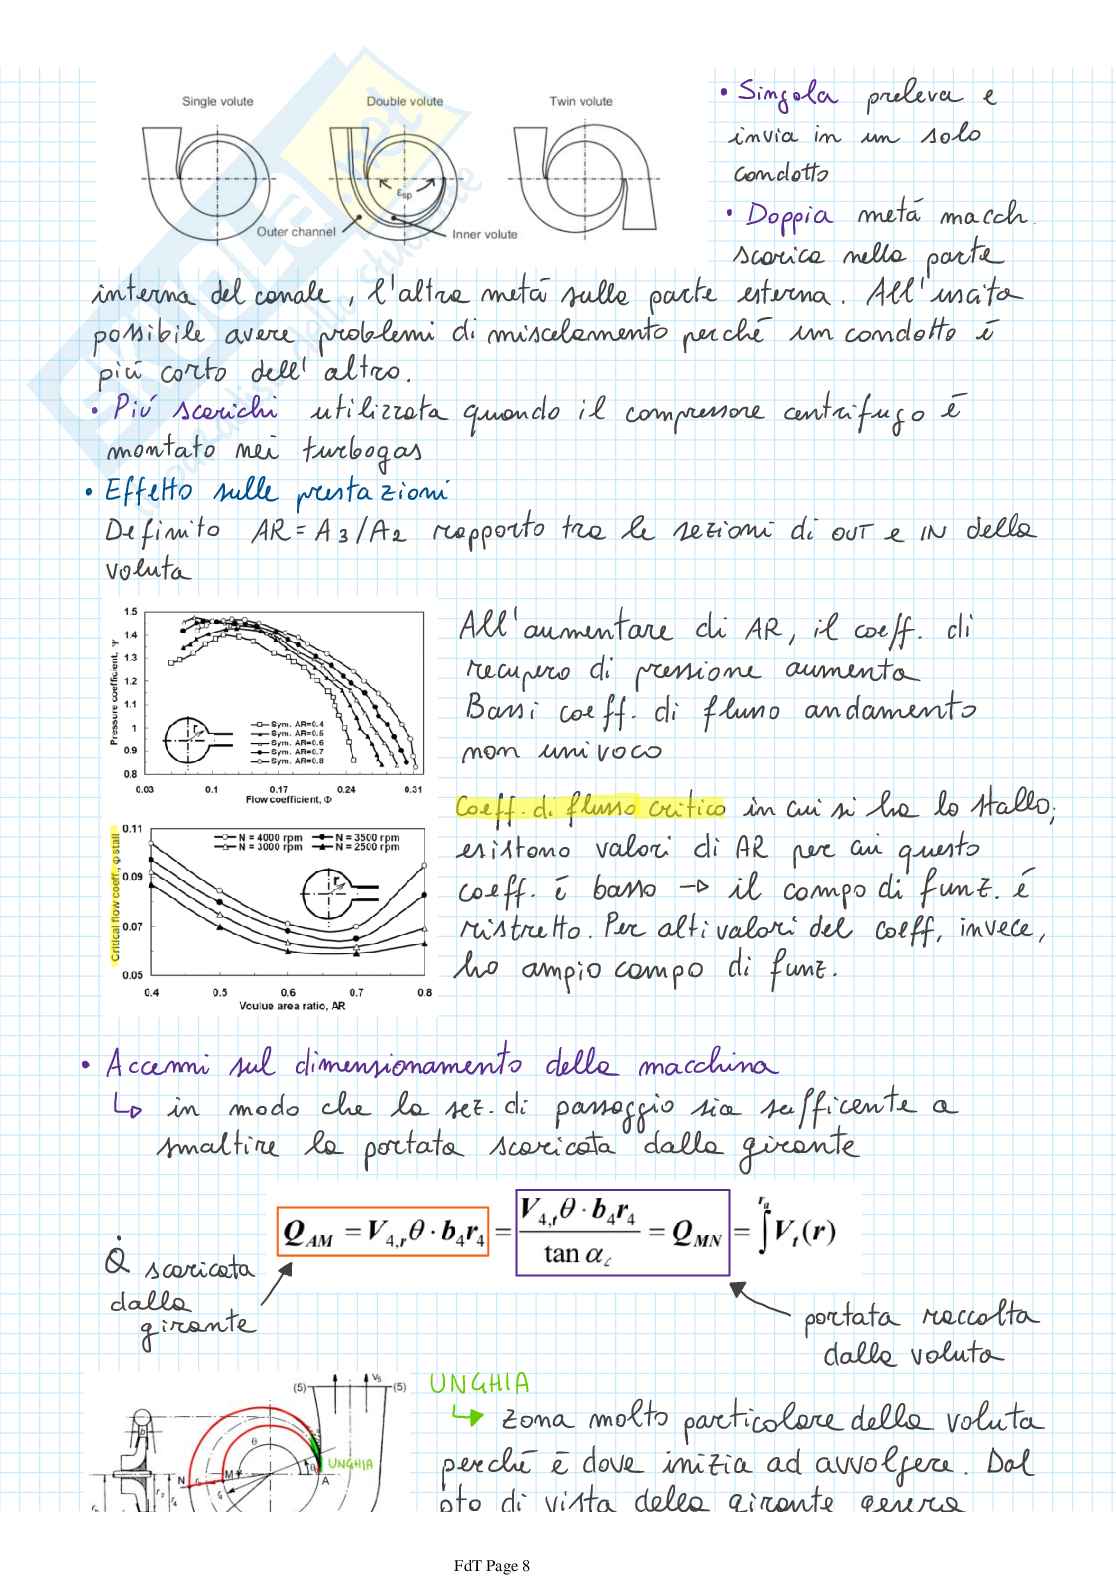 Single volute
Double volute
Twin volute
εsp
Outer channel
Inner volute
• Singola preleva e
invia in un solo
condotto
• Doppia metá macch.
scarica nella parte
interna del canale, l'altra metá sulla parte esterna. All'uscita
possibile avere problemi di miscelamento perché un condotto é
piú corto dell'altro.
• Piú scarichi utilizzata quando il compressore centrifugo é
montato nei turbogas
• Effetto sulle prestazioni
Definito AR = A3/A2 rapporto tra le sezioni di OUT e IN della
voluta
Pressure coefficient, Ψ
1.5
1.4
1.3
1.2
1.1
1
0.9
0.8
r
Sym. AR=0.4
Sym. AR=0.5
Sym. AR=0.6
Sym. AR=0.7
Sym. AR=0.8
0.03 0.1 0.17 0.24 0.31
Flow coefficient, Φ
All'aumentare di AR, il coeff. di
recupero di pressione aumenta
Bassi coeff. di flusso andamento
non univoco
Critical flow coeff., φ stall
0.11
0.09
0.07
0.05
N = 4000 rpm N = 3500 rpm
N = 3000 rpm N = 2500 rpm
r
0.4 0.5 0.6 0.7 0.8
Voulue area ratio, AR
Coeff. di flusso critico in cui si ha lo stallo;
esistono valori di AR per cui questo
coeff. é basso → il campo di funz. é
ristretto. Per alti valori del coeff, invece,
ho ampio campo di funz.
• Accenni sul dimensionamento della macchina
↳ in modo che la sez. di passaggio sia sufficente a
smaltire la portata scaricata dalla girante
Q_AM = V4,r θ · b4 r4 = V4,t θ · b4 r4 / tan α = Q_MN = ∫ Vt(r)
Q̇ scaricata
dalla
girante
portata raccolta
dalla voluta
(5) V5 (5)
b
θ
N
M
UNGHIA
A
UNGHIA
↳ zona molto particolare della voluta
perché é dove inizia ad avvolgere. Dal
pto di vista della girante genera
FdT Page 8